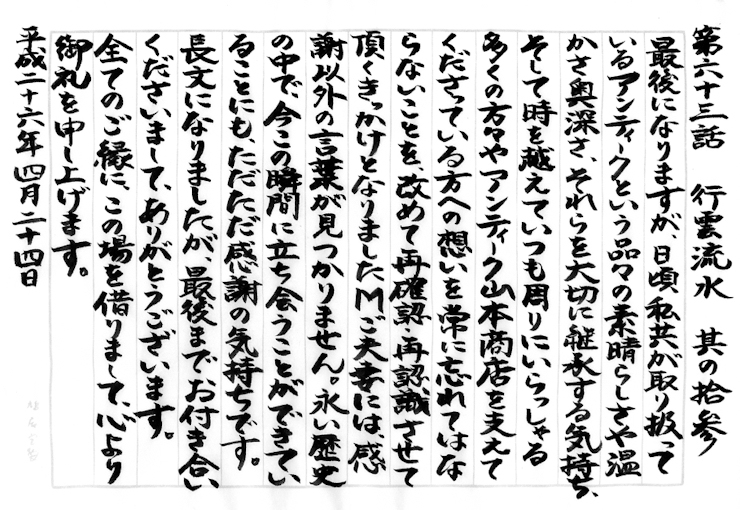 第六十三話　行雲流水　其の拾参
最後になりますが、日頃私共が取り扱って
いるアンティークという品々の素晴らしさや温
かさ奥深さ、それらを大切に継承する気持ち、
そして時を越えていつも周りにいらっしゃる
多くの方々やアンティーク山本商店を支えて
くださっている方への想いを常に忘れてはな
らないことを、改めて再確認・再認識させて
頂くきっかけとなりましたM.ご夫妻には、感
謝以外の言葉が見つかりません。永い歴史
の中で、今この瞬間に立ち会うことができてい
ることにも、ただただ感謝の気持ちです。
長文になりましたが、最後までお付き合い
くださいまして、ありがとうございます。
全てのご縁に、この場を借りまして、心より
御礼を申し上げます。
平成二十六年四月二十四日